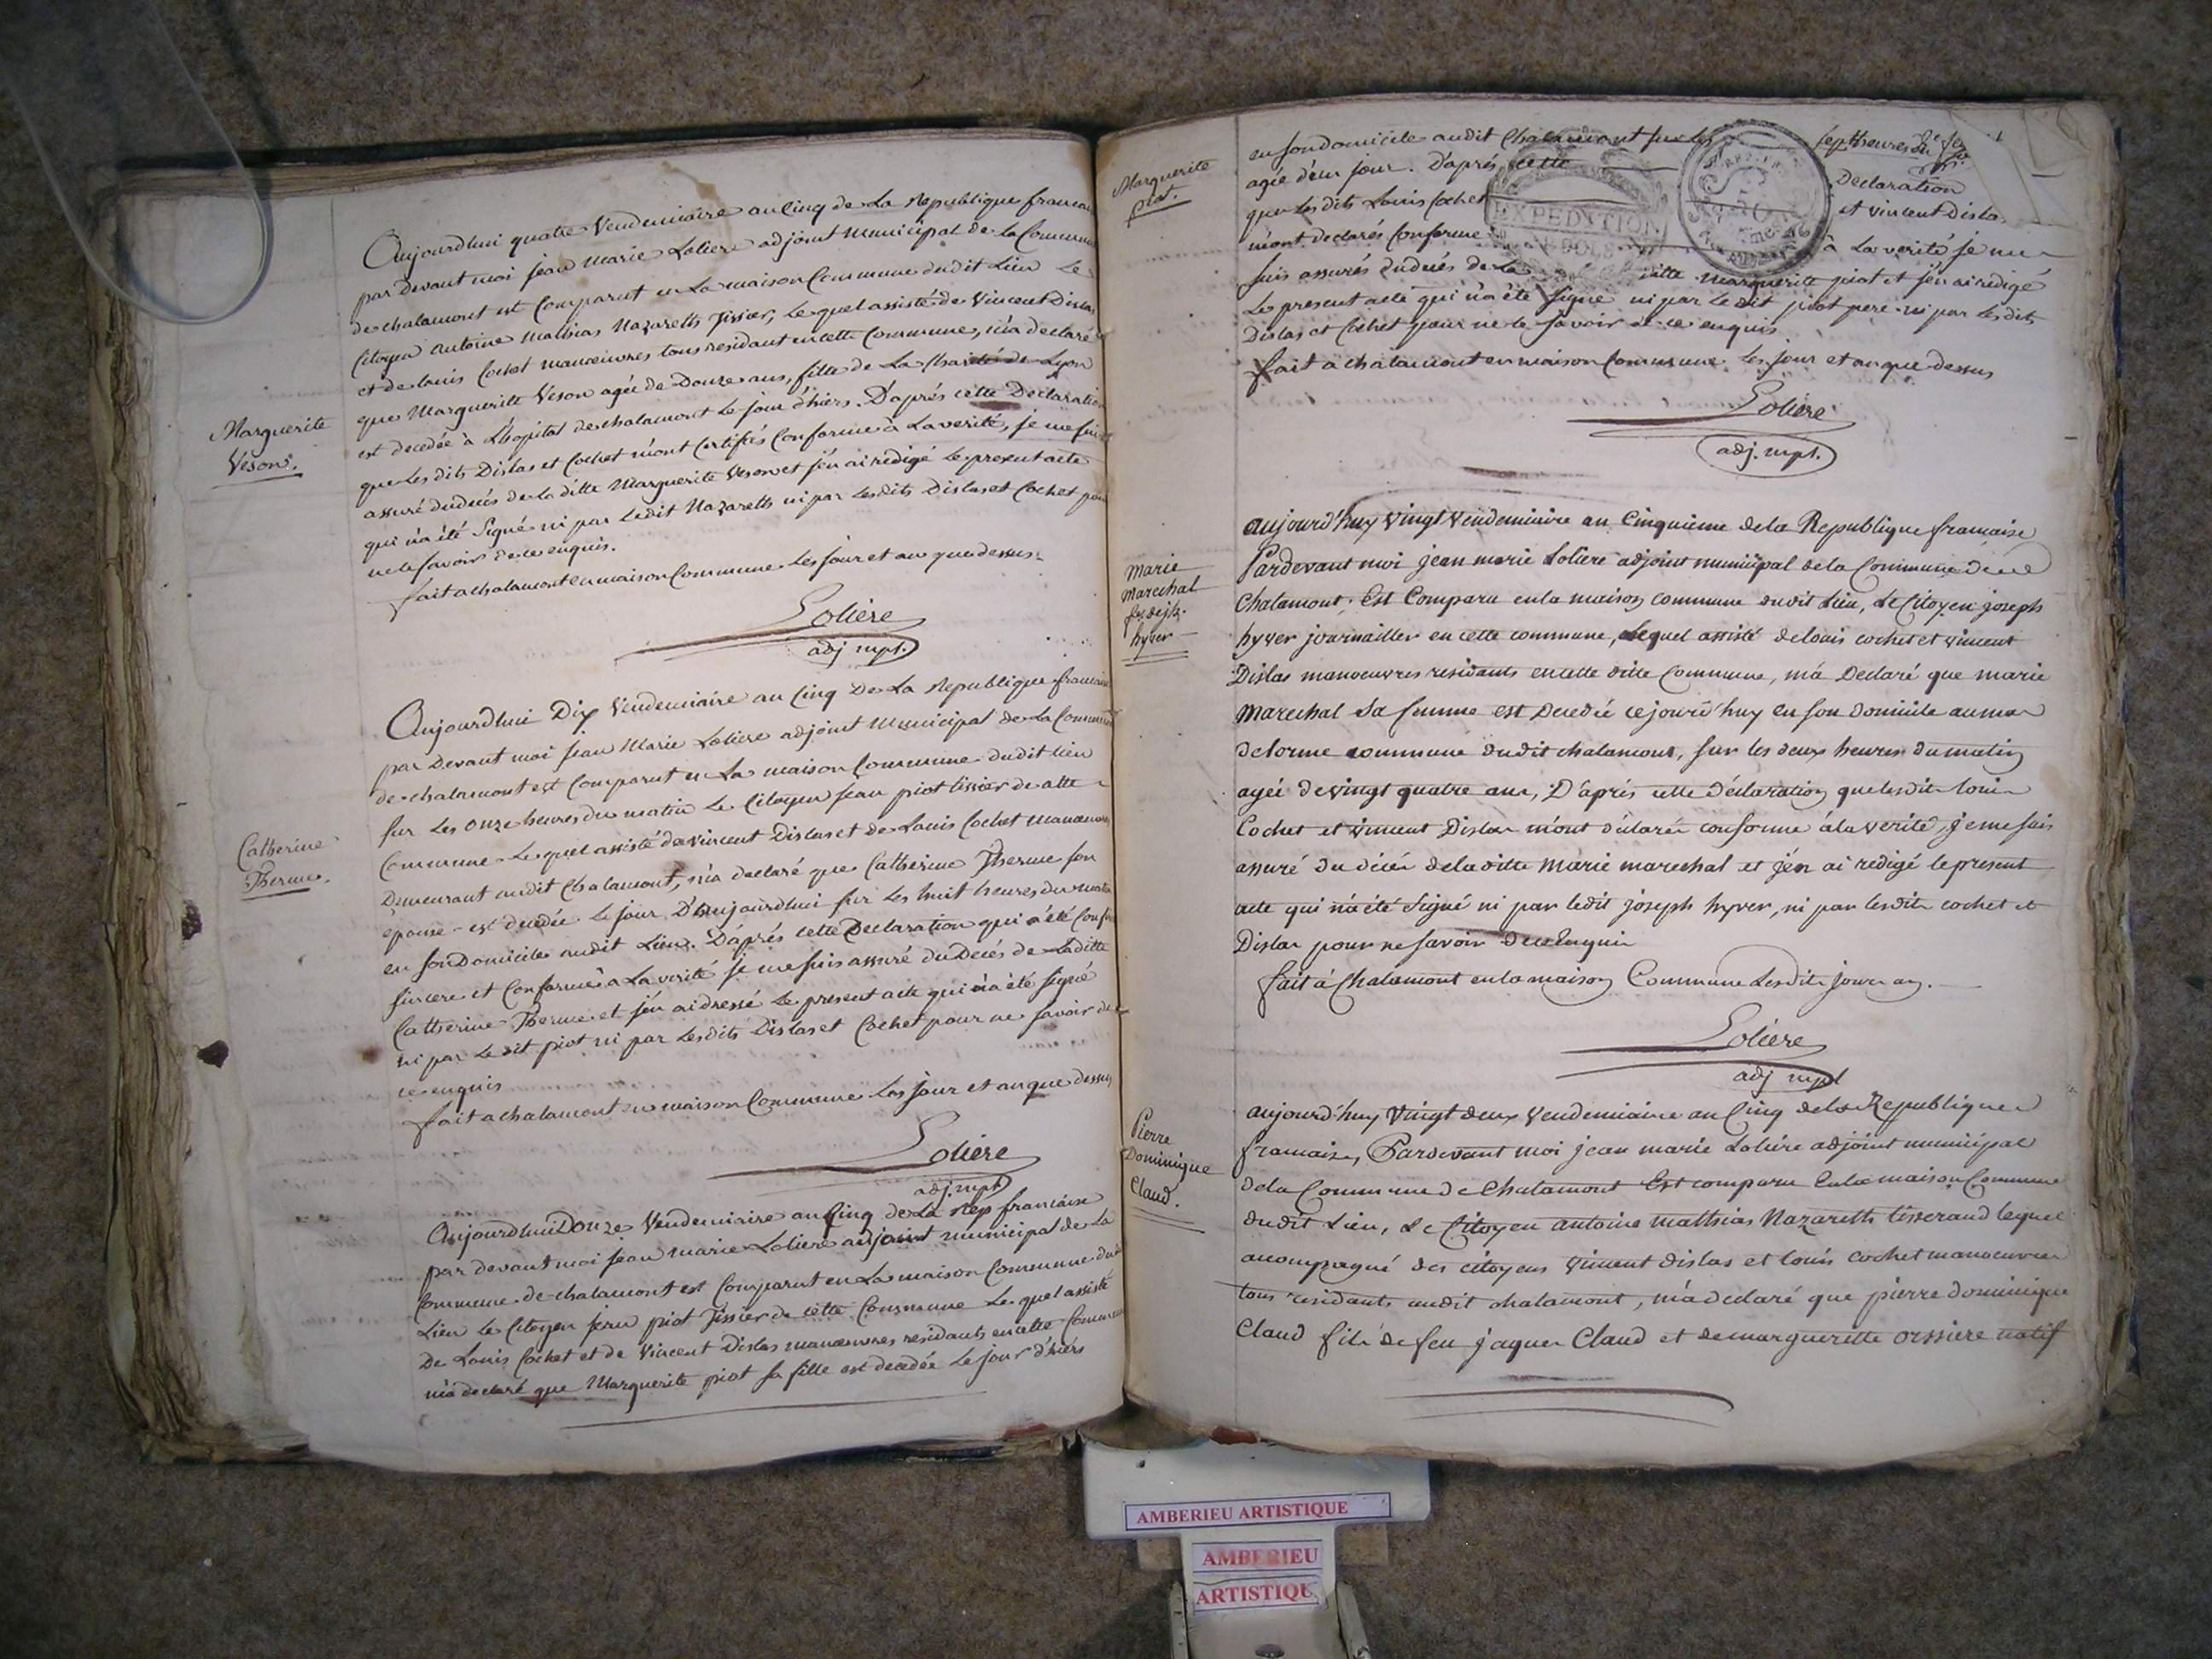 Marguerite
Veson.
Aujourdhui quatre Vendemiaire an Cinq de La Republique francaise
par Devant moi jean Marie Loliere adjoint Municipal de la Commune
de chalamont est Comparut en La maison Commune dudit Lieu Le
Citoyen Antoine Mathias Nazareth Tissier, Le quel assisté de Vincent Dislas
et de louis Cochet manoeuvres tous residant en cette Commune, m'a declaré
que Marguerite Veson agée de Douze ans, fille de La Charité de Lyon
est decedée à L'hopital de chalamont Le jour d'hiers. D'aprés cette Declaration
que Les dits Dislas et Cochet m'ont Certifiés Conforme à La verité, je me suis
assuré du decés de la ditte Marguerite Veson et j'en ai redigé Le present acte
qui n'a été Signé ni par Ledit Nazareth ni par Lesdits Dislas et Cochet pour
ne le savoir de ce enquis.
fait a chalamont en maison Commune Les jour et an que dessus.
Loliere
adj mpl.
Catherine
Therme.
Aujourdhui Dix Vendemiaire an Cinq De La Republique francaise
par Devant moi jean Marie Loliere adjoint Municipal de La Commune
de chalamont est Comparut en La maison Commune dudit lieu
sur Les onze heures du matin Le Citoyen Jean piot tissier de cette
Commune Le quel assisté de vincent Dislas et de Louis Cochet manoeuvres
Demeurant audit Chalamont, m'a declaré que Catherine Therme son
epouse est decedée Le jour D'aujourdhui sur Les huit heures du matin
en son Domicile audit Lieu. D'aprés cette Declaration qui a été
sincere et Conforme à La verité je me suis assuré du Decés de La ditte
Catherine Therme et j'en ai dressé Le present acte qui n'a été signé
ni par Le dit piot ni par Lesdits Dislas et Cochet pour ne savoir de
ce enquis
fait a chalamont en maison Commune Les jour et an que dessus
Loliere
adj. mpl
Aujourdhui Douze Vendemiaire an Cinq de La Rep francaise
par devant moi jean marie Loliere adjoint municipal de La
Commune de chalamont est Comparut en La maison Commune dudit
Lieu Le Citoyen jean piot Tissier de cette Commune Le quel assisté
De Louis Cochet et de Vincent Dislas manoeuvres residants en cette Commune
m'a declaré que Marguerite piot sa fille est decedée Le jour d'hiers
Marguerite
piot.
en son Domicile audit Chalamont sur les sept heures du
agée d'un jour. D'aprés cette Declaration
que Les dits Louis Cochet et vincent Dislas
m'ont declarés Conforme à La verité je me
suis assurés du decés de La ditte Marguerite piot et j'en ai redigé
Le present acte qui n'a été signé ni par Le dit piot pere ni par Les dits
Dislas et Cochet pour ne le savoir de ce enquis
fait a chalamont en maison Commune les jour et an que dessus
EXPEDITION
Loliere
adj. mpl.
marie
marechal
fe. de jh.
hyver
aujourd'huy vingt vendemiaire an Cinquieme de la Republique francaise
Pardevant moi jean marie Loliere adjoint municipal de la Commune de
Chalamont. Est Comparu en la maison commune dudit Lieu, Le Citoyen joseph
hyver journailler en cette commune, Lequel assisté de louis cochet et vincent
Dislas manoeuvres residants en cette ditte Commune, m'a Declaré que marie
Marechal sa femme est Decedée cejourd'huy en son domicile au mas
delorme commune dudit chalamont, sur les deux heures du matin
agée de vingt quatre ans, D'aprés cette déclaration que lesdits louis
Cochet et vincent Dislas m'ont déclarés conforme à la verité, je me suis
assuré du décés de la ditte Marie marechal et j'en ai redigé le present
acte qui n'a été signé ni par ledit joseph hyver, ni par lesdits cochet et
Dislas pour ne savoir de ce Enquis
fait à Chalamont en la maison Commune Lesdits jour an.
Loliere
adj mpl
Pierre
Dominique
Claud.
aujourd'huy vingt deux vendemiaire an Cinq de la Republique
francaise, Pardevant moi jean marie Loliere adjoint municipal
de la Commune de Chalamont Est comparu En la maison Commune
dudit Lieu, Le Citoyen antoine Mathias Nazareth tisserand lequel
acompagné des citoyens vincent dislas et louis cochet manoeuvres
tous residants audit chalamont, m'a declaré que pierre dominique
Claud fils de feu jaques Claud et de marguerite orssiere natif
AMBERIEU ARTISTIQUE
AMBERIEU
ARTISTIQUE